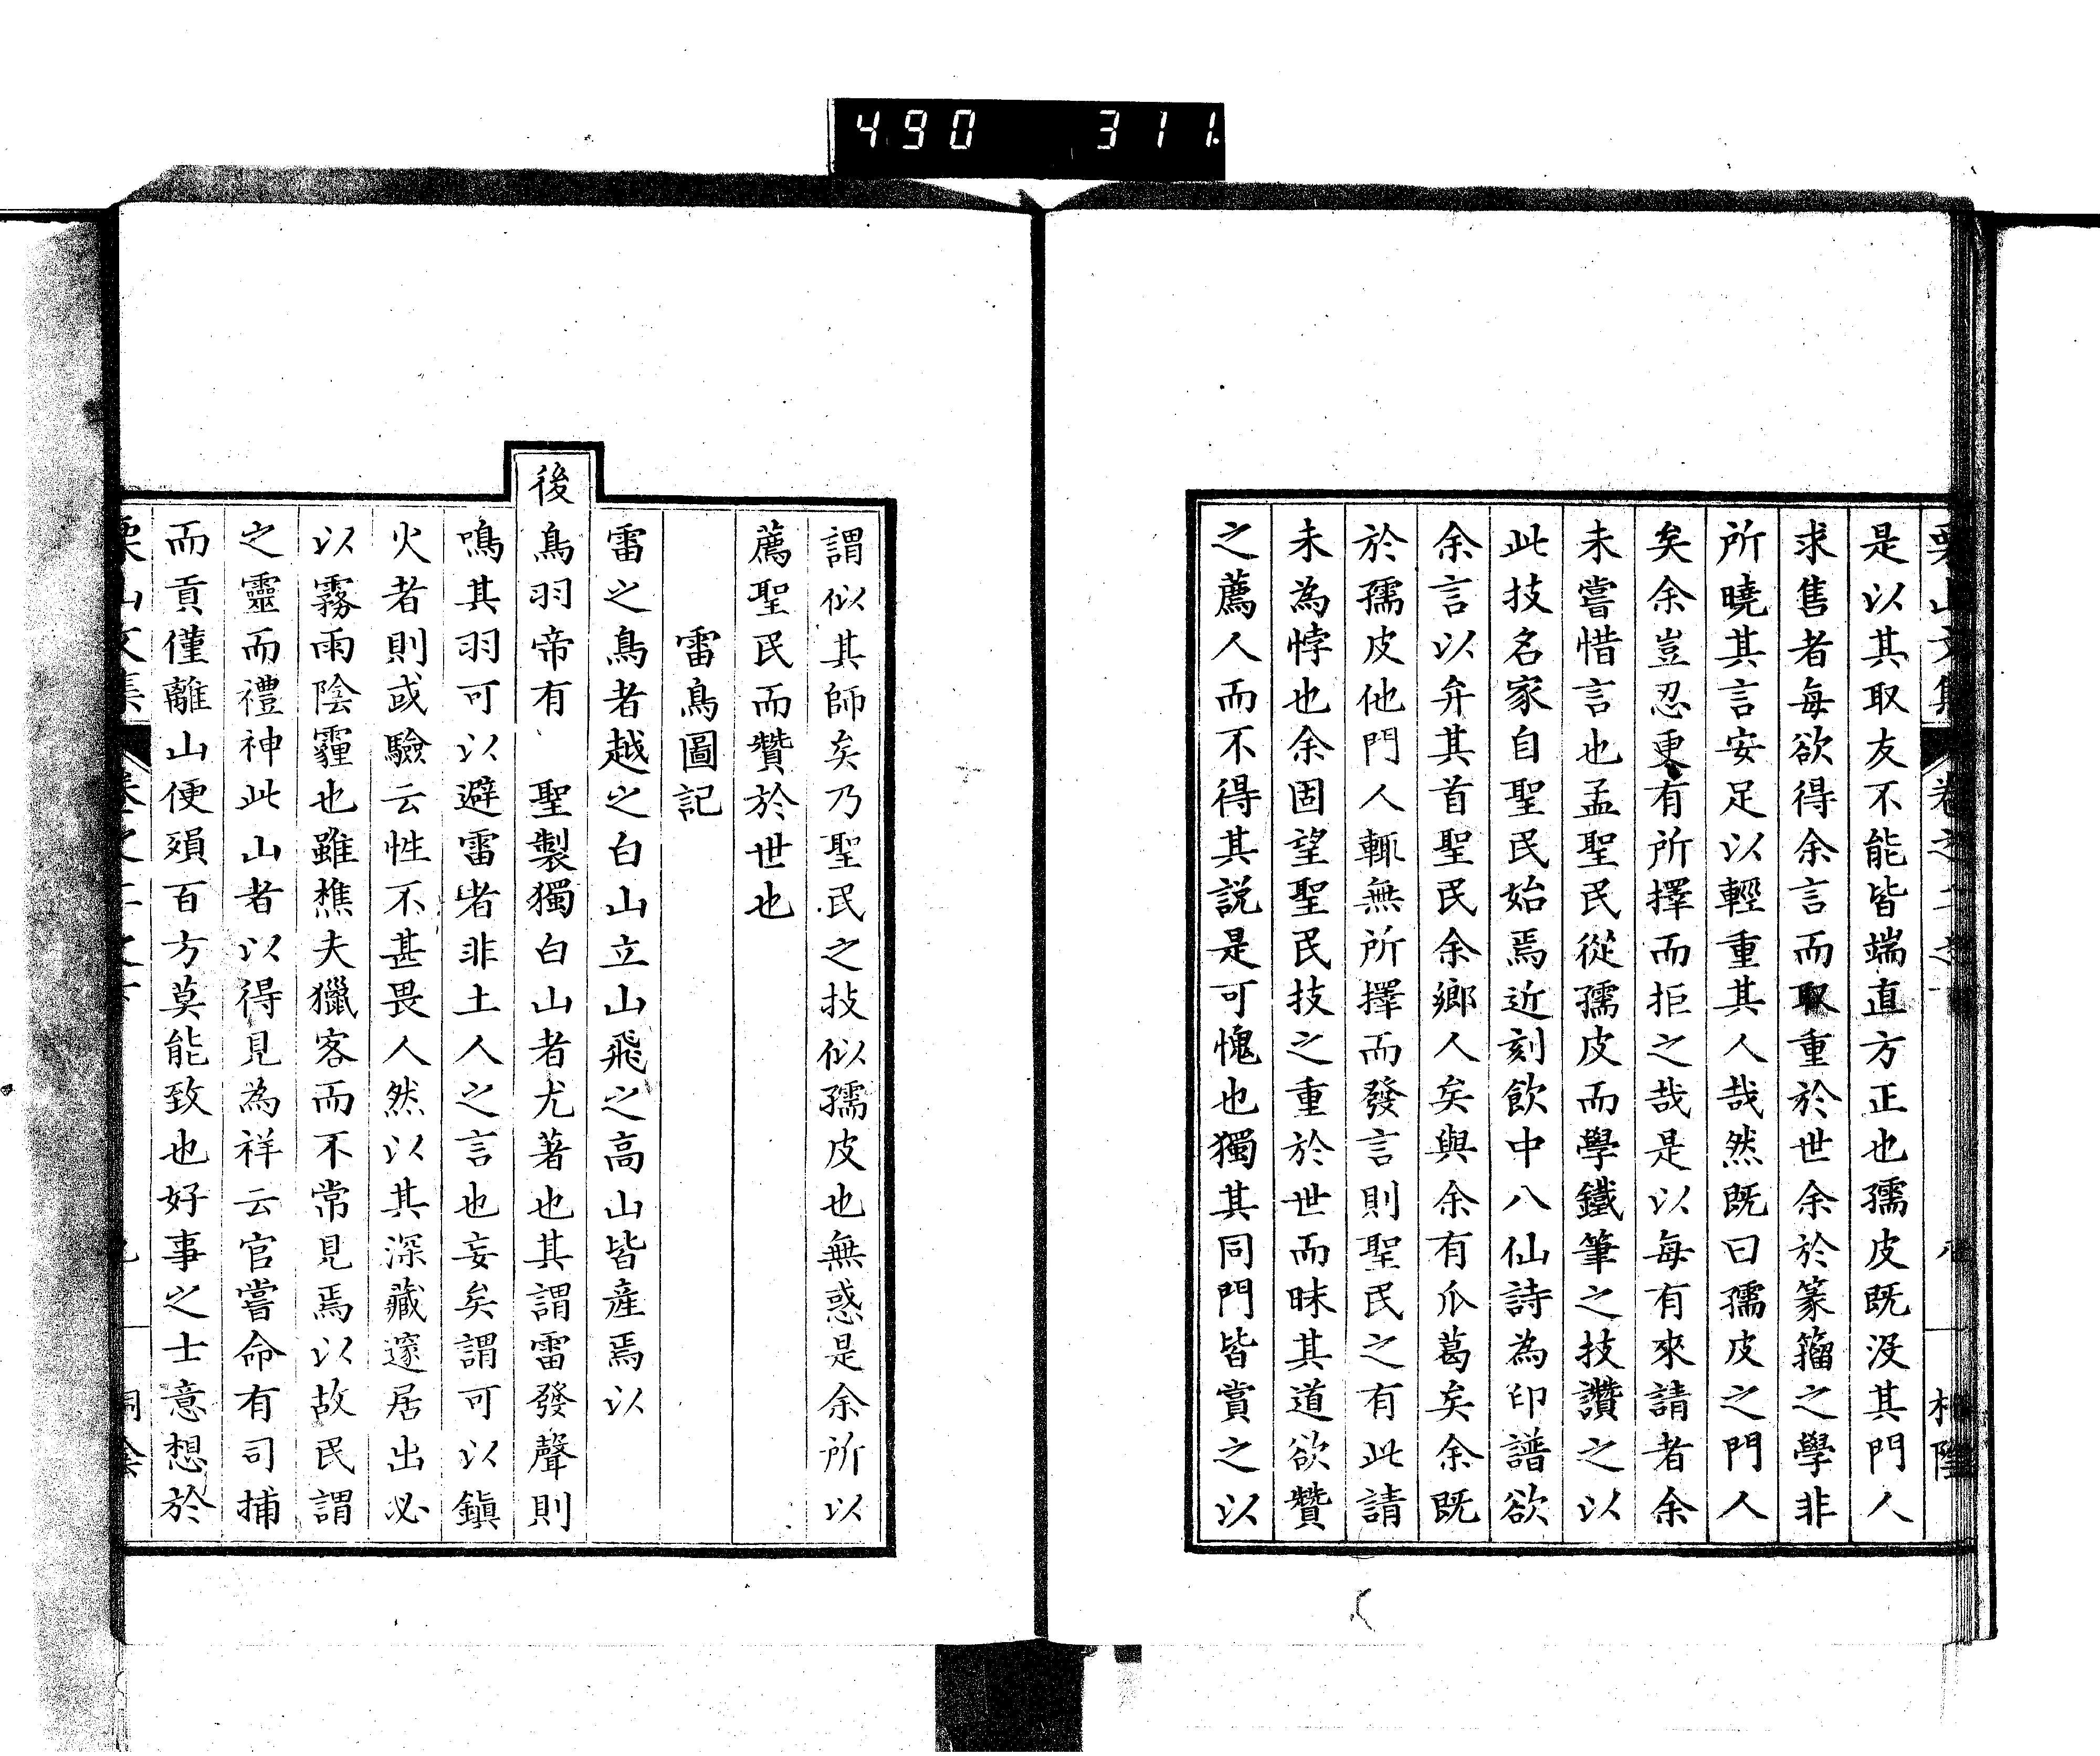 490 311
栗山文集 卷之二 八
是以其取友不能皆端直方正也孺皮既没其門人
求售者每欲得余言而取重於世余於篆籀之學非
所曉其言安足以輕重其人哉然既曰孺皮之門人
矣余豈忍更有所擇而拒之哉是以每有來請者余
未嘗惜言也孟聖民從孺皮而學鐵筆之技讚之以
此技名家自聖民始焉近刻飲中八仙詩為印譜欲
余言以弁其首聖民余鄉人矣與余有瓜葛矣余既
於孺皮他門人輒無所擇而發言則聖民之有此請
未為悖也余固望聖民技之重於世而昧其道欲贊
之薦人而不得其説是可愧也獨其同門皆賞之以
謂似其師矣乃聖民之技似孺皮也無惑是余所以
薦聖民而贊於世也
雷鳥圖記
雷之鳥者越之白山立山飛之高山皆産焉以
後鳥羽帝有 聖製獨白山者尤著也其謂雷發聲則
鳴其羽可以避雷者非土人之言也妄矣謂可以鎮
火者則或驗云性不甚畏人然以其深藏邃居出必
以霧雨陰霾也雖樵夫獵客而不常見焉以故民謂
之靈而禮神此山者以得見為祥云官嘗命有司捕
而貢僅離山便殞百方莫能致也好事之士意想於
栗山文集 卷之二